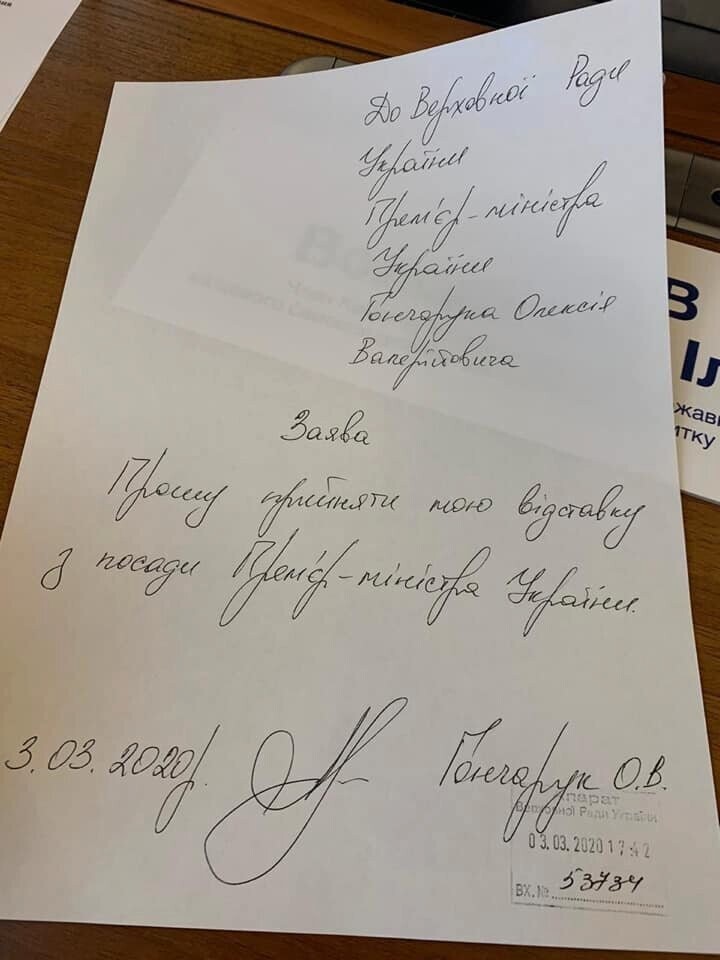 До Верховної Ради
України
Прем'єр-міністра
України
Гончарука Олексія
Валерійовича
Заява
Прошу прийняти мою відставку
з посади Прем'єр-міністра України.
3.03.2020р. Гончарук О.В.
Апарат
Верховної Ради України
03.03.2020 17:42
ВХ.№ 53734
В
Іл